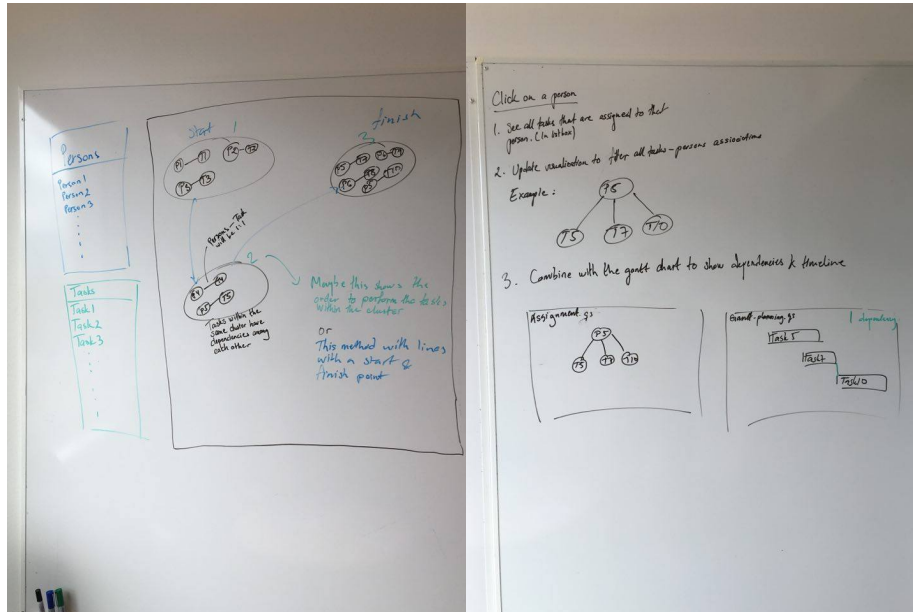 Persons
Person 1
Person 2
Person 3
Tasks
Task 1
Task 2
Task 3
Start 1
P1 T1
P2 T2
P3 T3
finish
3
P5
P6
P5
T10
Persons - Task
will be 1:1
2
P4 T4
P5 T5
Tasks within the
same cluster have
dependencies among
each other
Maybe this shows the
order to perform the tasks
within the cluster
or
This method with lines
with a start &
finish point
Click on a person
1. See all tasks that are assigned to that
person. (In listbox)
2. Update visualization to filter all tasks-persons associations
Example:
P5
T5 T7 T10
3. Combine with the gantt chart to show dependencies & timeline
Assignment.gs
P5
T5 T7 T10
Gantt-planning.gs
| dependency
Task 5
Task 7
Task 10